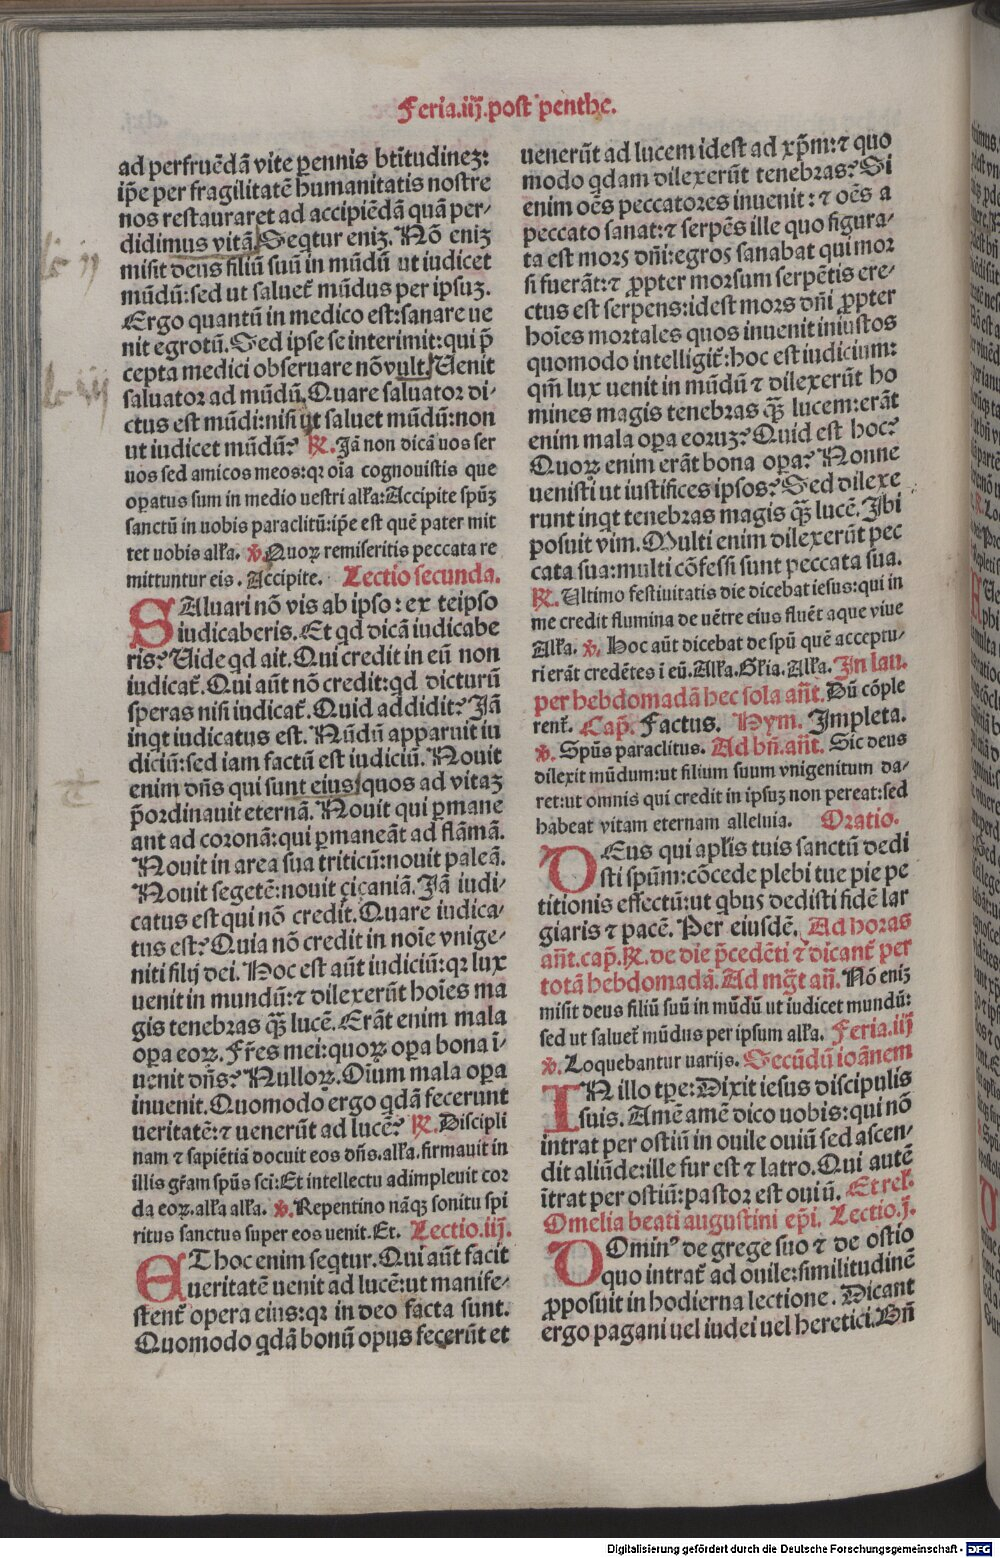 Feria.iij.post penthe.
ad perfruēdā vite ꝑennis btītudinez:
ip̄e per fragilitatē humanitatis nostre
nos restauraret ad accipiēdā quā per-
didimus vitā. Seqtur eniz. Nō eniz
misit deus filiū suū in mūdū ut iudicet
mūdū: sed ut saluet᷑ mūdus per ipsuz.
Ergo quantū in medico est: sanare ue
nit egrotū. Sed ipse se interimit: qui p̄
cepta medici obseruare nō vult. Uenit
saluator ad mūdū. Quare saluator di-
ctus est mūdi: nisi ut saluet mūdū: non
ut iudicet mūdū? ℟. Jā non dicā uos ser
uos sed amicos meos: qꝛ oīa cognouistis que
oꝑatus sum in medio uestri allꝛa: Accipite spūz
sanctū in uobis paraclitū: ip̄e est quē pater mit
tet uobis allꝛa. ℣. Quoꝝ remiseritis peccata re
mittuntur eis. Accipite. Lectio secunda.
SAluari nō vis ab ipso: ex teipso
iudicaberis. Et qd dicā iudicabe
ris? Uide qd ait. Qui credit in eū non
iudicat᷑. Qui aūt nō credit: qd dicturū
speras nisi iudicat᷑. Quid addidit? Jā
inqt iudicatus est. Nūdū apparuit iu
diciū: sed iam factū est iudiciū. Nouit
enim dn̄s qui sunt eius: quos ad vitaz
p̄ordinauit eternā. Nouit qui ꝑmane
ant ad coronā: qui ꝑmaneāt ad flāmā.
Nouit in area sua triticū: nouit paleā.
Nouit segetē: nouit çiçaniā. Jā iudi-
catus est qui nō credit. Quare iudica-
tus est? Quia nō credit in noīe vnige-
niti filij dei. Hoc est aūt iudiciū: qꝛ lux
uenit in mundū: ⁊ dilexerūt hoīes ma
gis tenebras q̄ꝫ lucē. Erāt enim mala
oꝑa eoꝝ. Fr̄es mei: quoꝝ oꝑa bona ī-
uenit dn̄s? Nulloꝝ. Oīum mala oꝑa
inuenit. Quomodo ergo qdā fecerunt
ueritatē: ⁊ uenerūt ad lucē? ℟. Discipli
nam ⁊ sapiētiā docuit eos dn̄s. allꝛa. firmauit in
illis gr̄am spūs sci: Et intellectu adimpleuit cor
da eoꝝ. allꝛa allꝛa. ℣. Repentino nāqꝫ sonitu spi
ritus sanctus super eos uenit. Et. Lectio.iij.
ET hoc enim seqtur. Qui aūt facit
ueritatē uenit ad lucē: ut manife-
stent᷑ opera eius: qꝛ in deo facta sunt.
Quomodo qdā bonū opus fecerūt et
uenerūt ad lucem idest ad xp̄m: ⁊ quo
modo qdam dilexerūt tenebras? Si
enim oēs peccatores inuenit: ⁊ oēs a
peccato sanat: ⁊ serpēs ille quo figura-
ta est mors dn̄i: egros sanabat qui mor
si fuerāt: ⁊ ꝓpter morsum serpētis ere-
ctus est serpens: idest mors dn̄i ꝓpter
hoīes mortales quos inuenit iniustos
quomodo intelligit᷑: hoc est iudicium:
qm̄ lux uenit in mūdū ⁊ dilexerūt ho
mines magis tenebras q̄ꝫ lucem: erāt
enim mala oꝑa eoruz? Quid est hoc?
Quoꝝ enim erāt bona oꝑa? Nonne
uenisti ut iustifices ipsos? Sed dilexe
runt inqt tenebras magis q̄ꝫ lucē. Jbi
posuit vim. Multi enim dilexerūt pec
cata sua: multi cōfessi sunt peccata sua.
℟. Ultimo festiuitatis die dicebat iesus: qui in
me credit flumina de uētre eius fluēt aque viue
Allꝛa. ℣. Hoc aūt dicebat de spū quē acceptu-
ri erāt credētes ī eū. Allꝛa. Glꝛia. Allꝛa. Jn lau.
per hebdomadā hec sola an̄t. Dū cōple
rent᷑. Cap̄. Factus. Hym. Impleta.
℣. Spūs paraclitus. Ad bn̄. an̄t. Sic deus
dilexit mūdum: ut filium suum vnigenitum da-
ret: ut omnis qui credit in ipsuz non pereat: sed
habeat vitam eternam alleluia. Oratio.
DEus qui apl̄is tuis sanctū dedi
sti spūm: cōcede plebi tue pie pe
titionis effectū: ut qbus dedisti fidē lar
giaris ⁊ pacē. Per eiusdē. Ad horas
an̄t. cap̄. ℟. de die p̄cedēti ⁊ dicant᷑ per
totā hebdomadā. Ad mg̃t an̄. Nō eniz
misit deus filiū suū in mūdū ut iudicet mundū:
sed ut saluet᷑ mūdus per ipsum allꝛa. Feria.iij
℣. Loquebantur uarijs. Secūdū ioānem
IN illo tp̄e: Dixit iesus discipulis
suis. Amē amē dico uobis: qui nō
intrat per ostiū in ouile ouiū sed ascen-
dit aliūde: ille fur est ⁊ latro. Qui autē
ītrat per ostiū: pastor est ouiū. Et rel.
Omelia beati augustini ep̄i. Lectio.j.
DOminꝰ de grege suo ⁊ de ostio
quo intrat᷑ ad ouile: similitudinē
ꝓposuit in hodierna lectione. Dicant
ergo pagani uel iudei uel heretici. Bn̄
Digitalisierung gefördert durch die Deutsche Forschungsgemeinschaft - DFG